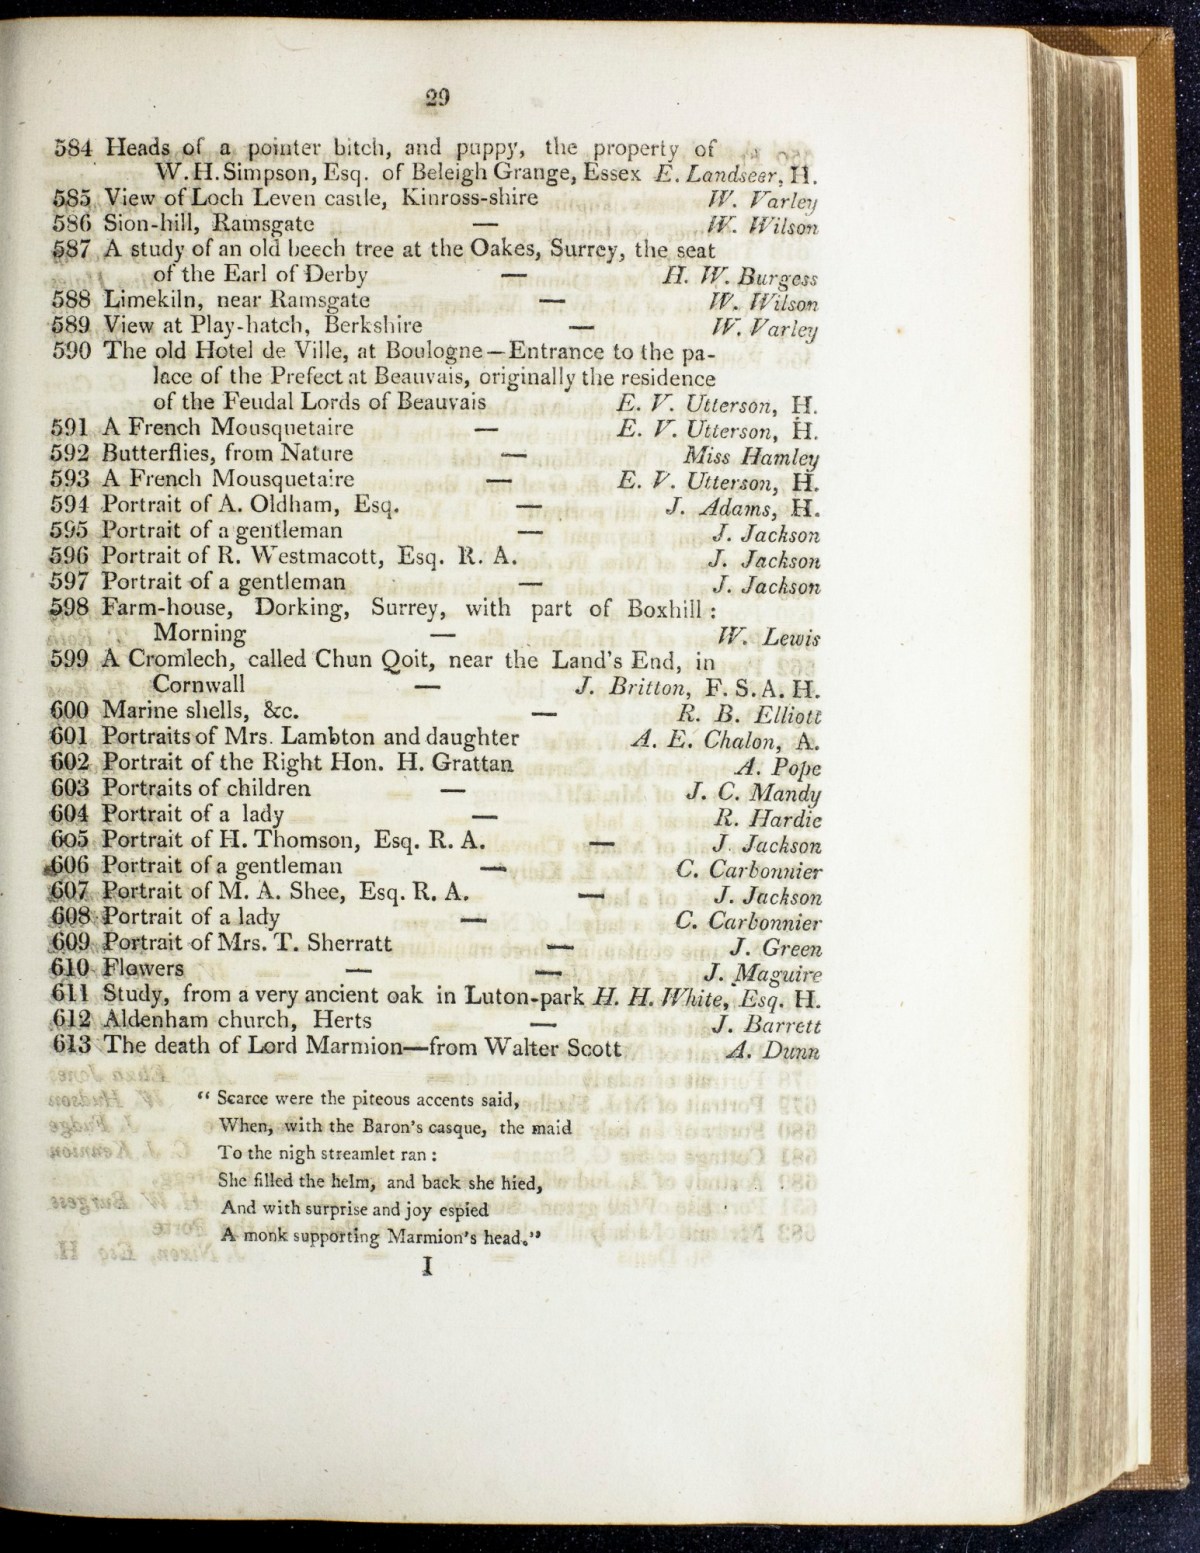 29
584 Heads of a pointer bitch, and puppy, the property of
W. H. Simpson, Esq. of Beleigh Grange, Essex E. Landseer, H.
585 View of Loch Leven castle, Kinross-shire W. Varley
586 Sion-hill, Ramsgate — W. Wilson
587 A study of an old beech tree at the Oakes, Surrey, the seat
of the Earl of Derby — H. W. Burgess
588 Limekiln, near Ramsgate — W. Wilson
589 View at Play-hatch, Berkshire — W. Varley
590 The old Hotel de Ville, at Boulogne—Entrance to the pa-
lace of the Prefect at Beauvais, originally the residence
of the Feudal Lords of Beauvais E. V. Utterson, H.
591 A French Mousquetaire — E. V. Utterson, H.
592 Butterflies, from Nature — Miss Hamley
593 A French Mousquetaire — E. V. Utterson, H.
594 Portrait of A. Oldham, Esq. — J. Adams, H.
595 Portrait of a gentleman — J. Jackson
596 Portrait of R. Westmacott, Esq. R. A. J. Jackson
597 Portrait of a gentleman — J. Jackson
598 Farm-house, Dorking, Surrey, with part of Boxhill :
Morning — W. Lewis
599 A Cromlech, called Chun Qoit, near the Land's End, in
Cornwall — J. Britton, F. S. A. H.
600 Marine shells, &c. — R. B. Elliott
601 Portraits of Mrs. Lambton and daughter A. E. Chalon, A.
602 Portrait of the Right Hon. H. Grattan A. Pope
603 Portraits of children — J. C. Mandy
604 Portrait of a lady — R. Hardie
605 Portrait of H. Thomson, Esq. R. A. — J. Jackson
606 Portrait of a gentleman — C. Carbonnier
607 Portrait of M. A. Shee, Esq. R. A. — J. Jackson
608 Portrait of a lady — C. Carbonnier
609 Portrait of Mrs. T. Sherratt — J. Green
610 Flowers — — J. Maguire
611 Study, from a very ancient oak in Luton-park H. H. White, Esq. H.
612 Aldenham church, Herts — J. Barrett
613 The death of Lord Marmion—from Walter Scott A. Dunn
“ Scarce were the piteous accents said,
When, with the Baron's casque, the maid
To the nigh streamlet ran :
She filled the helm, and back she hied,
And with surprise and joy espied
A monk supporting Marmion's head.”
I